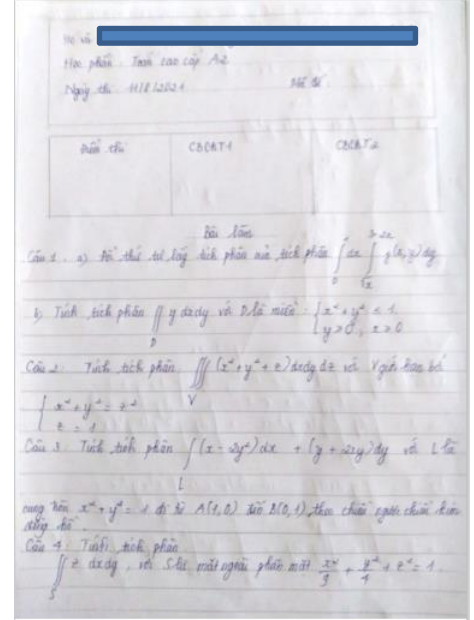 Họ và
Học phần: Toán cao cấp A2
Ngày thi: 11/8/2021 Mã đề:
Điểm thi CBCBT1 CBCBT2
Bài làm
Câu 1: a) Đổi thứ tự lấy tích phân của tích phân ∫ dx ∫ f(x,y) dy
b) Tính tích phân ∬_D y dxdy với D là miền: { x² + y² ≤ 1, y ≥ 0, x ≥ 0
Câu 2: Tính tích phân ∭_V (x² + y² + z) dxdydz với V giới hạn bởi
{ x² + y² = z², z = 1
Câu 3: Tính tích phân ∫_L (x - 2y²) dx + (y + 2xy) dy với L là
cung tròn x² + y² = 1 đi từ A(1,0) đến B(0,1) theo chiều ngược chiều kim
đồng hồ.
Câu 4: Tính tích phân
∬_S z dxdy, với S là mặt ngoài phần mặt x²/9 + y²/4 + z² = 1.